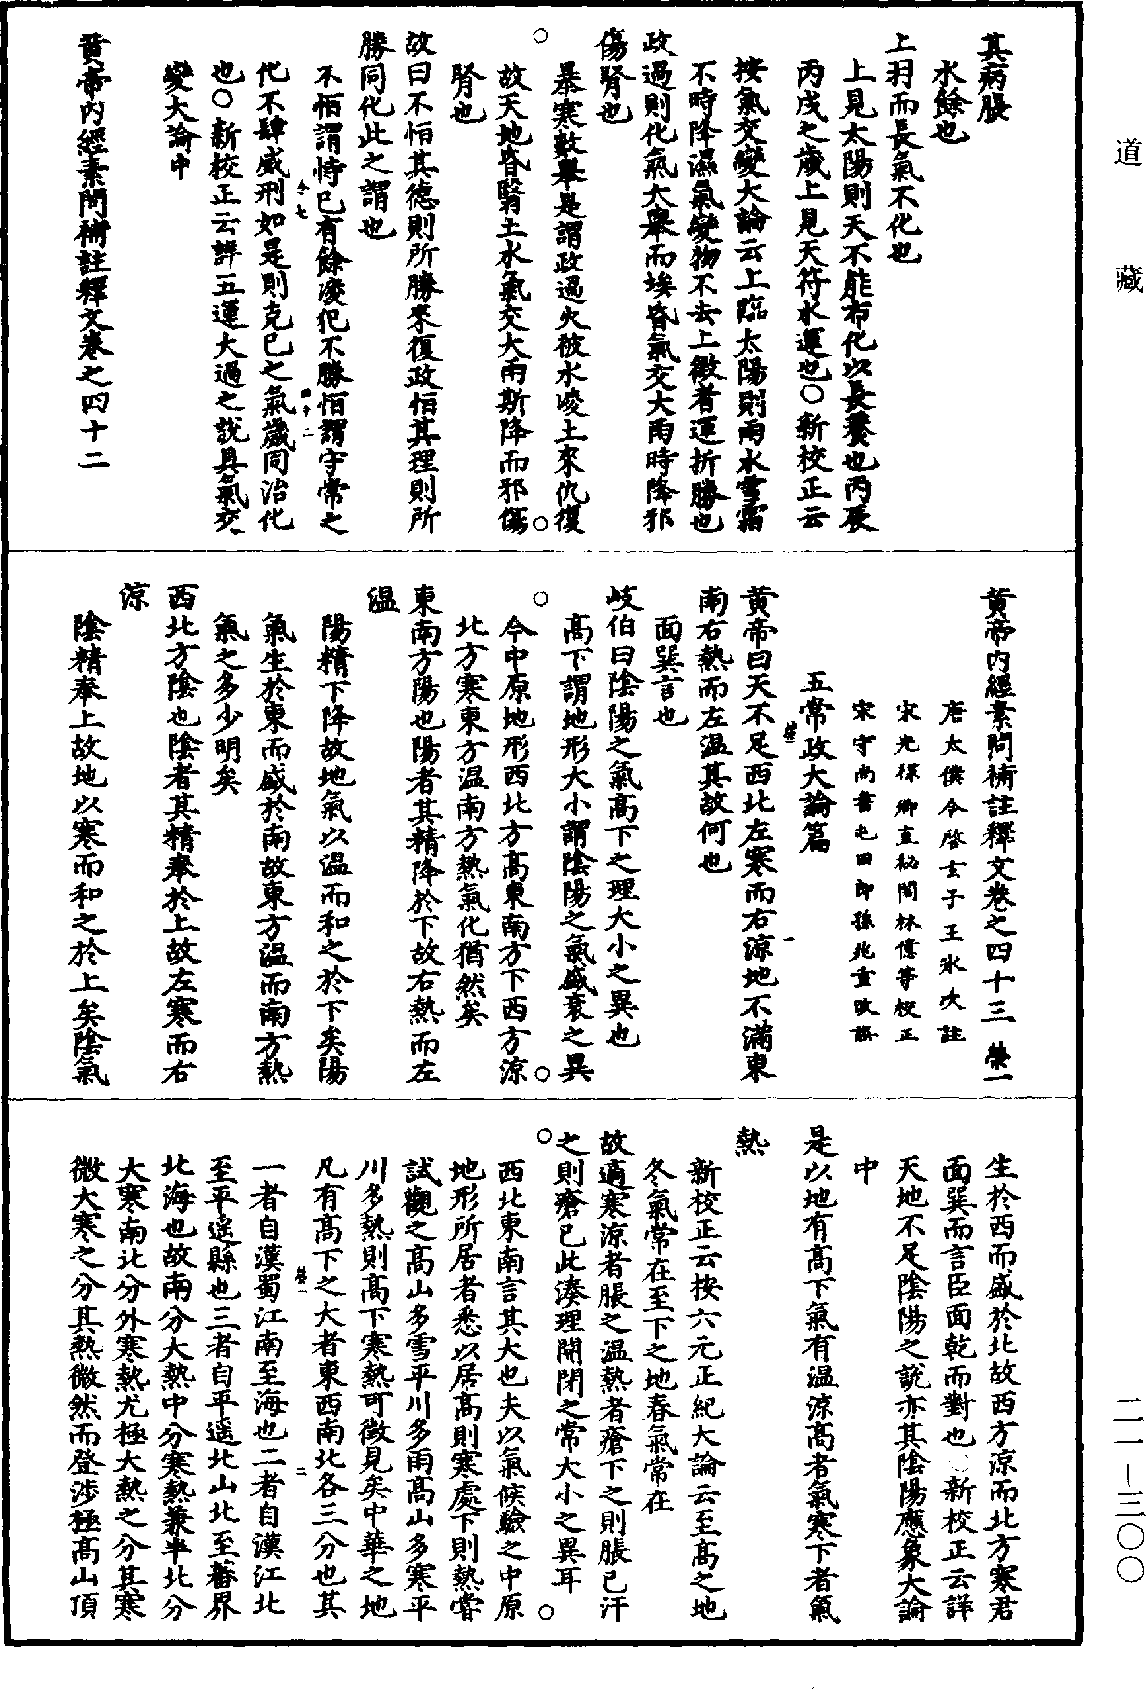 其病脹
水餘也
上羽而長氣不化也
上見太陽則天不能布化以長養也丙辰
丙戌之歲上見天符水運也○新校正云
按氣交變大論云上臨太陽則雨水雪霜
不時降濕氣變物不云上徵者運折勝也
政過則化氣大舉而埃昏氣交大雨時降邪
傷腎也
暴寒數舉是謂政過火被水凌土來仇復
故天地昏翳土水氣交大雨斯降而邪傷
腎也
故曰不恒其德則所勝來復政恒其理則所
勝同化此之謂也
不恒謂恃已有餘凌犯不勝恒謂守常之
化不肆威刑如是則克已之氣歲同治化
也○新校正云詳五運太過之說具氣交
變大論中
黃帝內經素問補註釋文卷之四十二
黃帝內經素問補註釋文卷之四十三 榮一
唐太僕令啓玄子王氷次註
宋光祿卿直秘閣林億等校正
宋守尚書屯田郎孫兆重改誤
五常政大論篇
黃帝曰天不足西北左寒而右涼地不滿東
南右熱而左温其故何也
面巽言也
岐伯曰陰陽之氣高下之理大小之異也
高下謂地形大小謂陰陽之氣盛衰之異
今中原地形西北方高東南方下西方涼
北方寒東方温南方熱氣化猶然矣
東南方陽也陽者其精降於下故右熱而左
温
陽精下降故地氣以温而和之於下矣陽
氣生於東而盛於南故東方温而南方熱
氣之多少明矣
西北方陰也陰者其精奉於上故左寒而右
涼
陰精奉上故地以寒而和之於上矣陰氣
生於西而盛於北故西方涼而北方寒君
面巽而言臣面乾而對也○新校正云詳
天地不足陰陽之說亦具陰陽應象大論
中
是以地有高下氣有温涼高者氣寒下者氣
熱
新校正云按六元正紀大論云至高之地
冬氣常在至下之地春氣常在
故適寒涼者脹之温熱者瘡下之則脹已汗
之則瘡已此湊理開閉之常大小之異耳
西北東南言其大也夫以氣候驗之中原
地形所居者悉以居高則寒處下則熱嘗
試觀之高山多雪平川多雨高山多寒平
川多熱則高下寒熱可徵見矣中華之地
凡有高下之大者東西南北各三分也其
一者自漢蜀江南至海也二者自漢江北
至平遙縣也三者自平遙北山北至蕃界
北海也故南分大熱中分寒熱兼半北分
大寒南北分外寒熱尤極大熱之分其寒
微大寒之分其熱微然而登涉極高山頂
道藏
二一—三〇〇